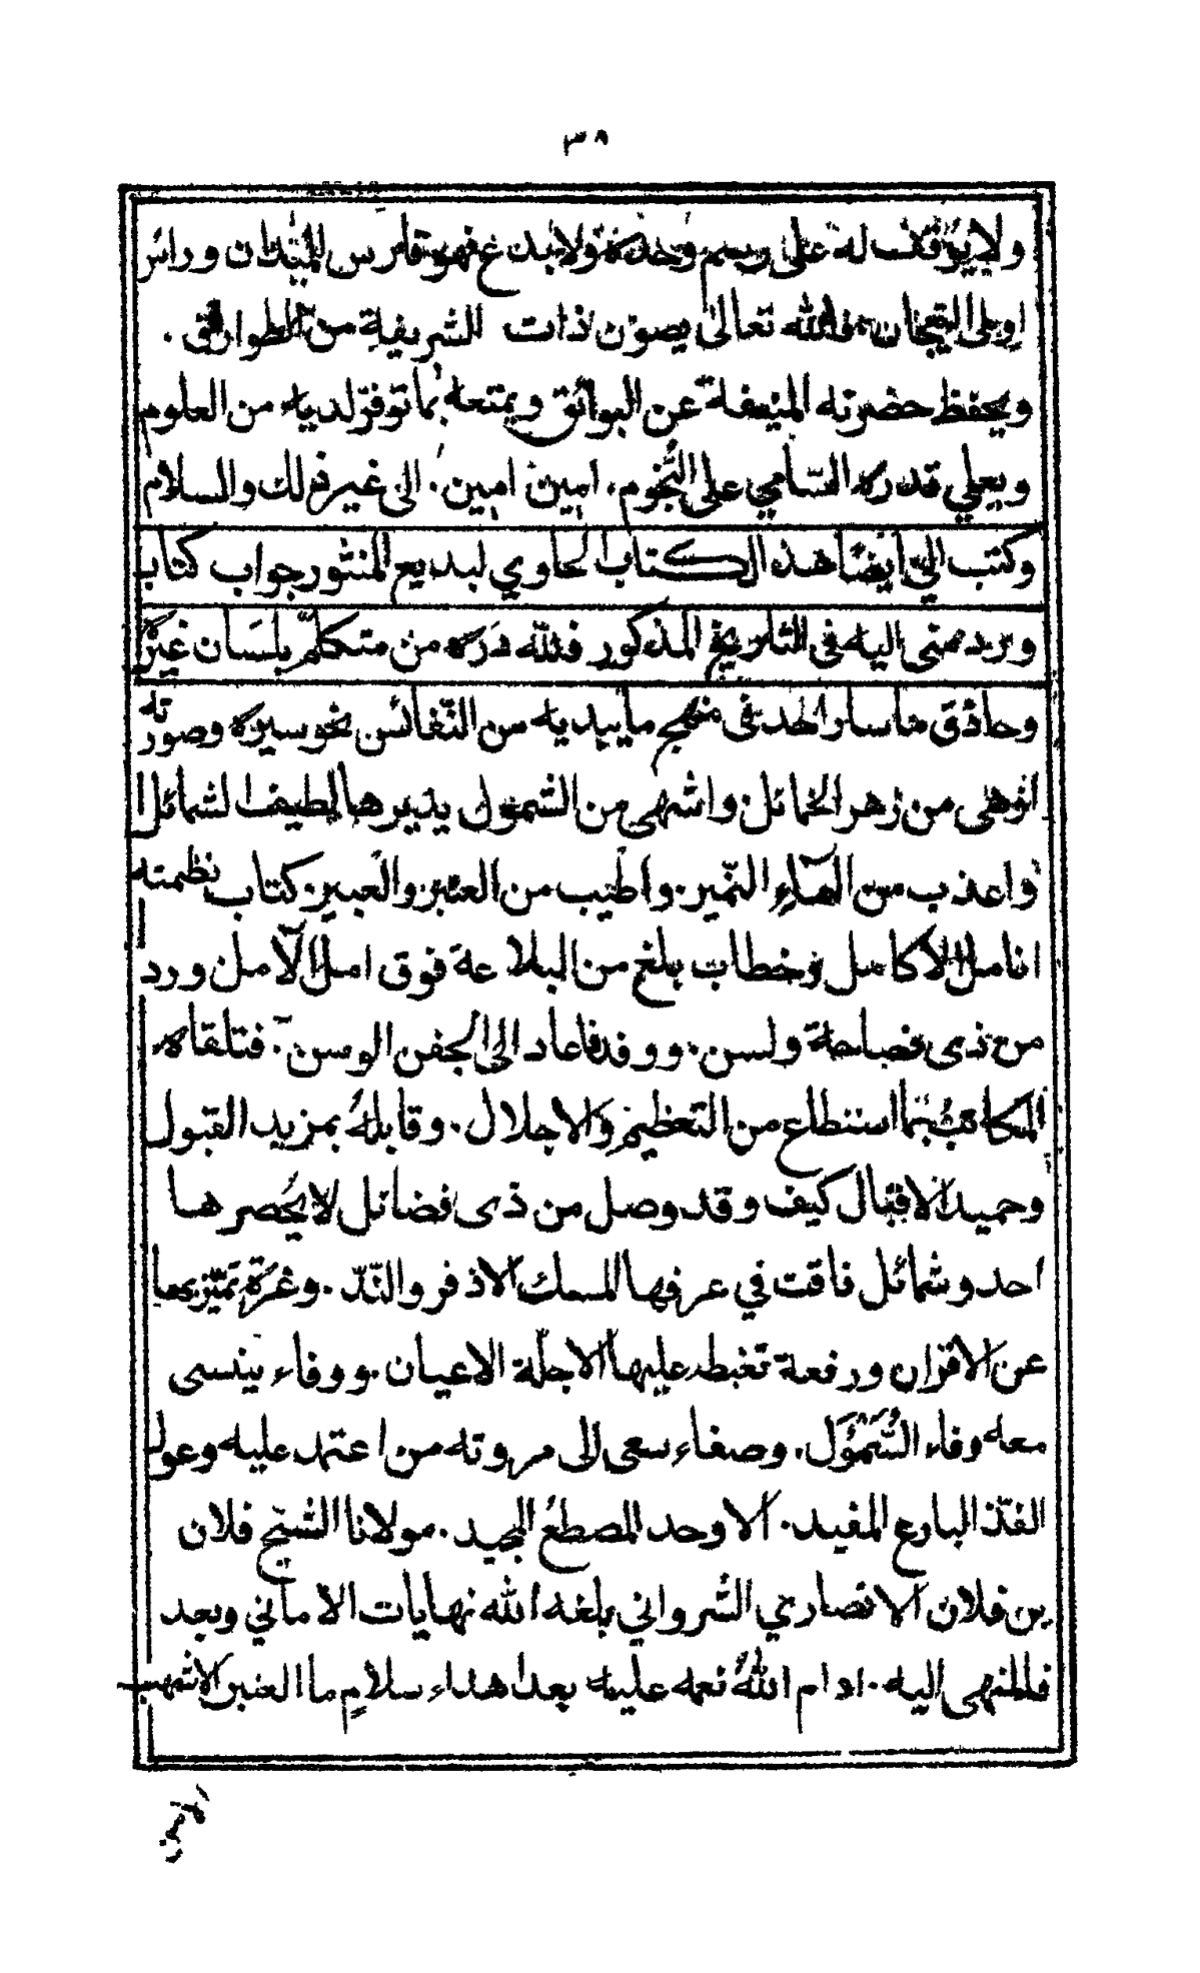 ٣٩
ولا يوقف له على رسم وحده ولا بدع فهو فارس الميدان وراس
اولى التيجان فالله تعالى يصون ذات الشريفة من الطوارق .
ويحفظ حضرته المنيفة عن البوائق ويمتعه بما توفر لديه من العلوم
ويعلي قدره السّامي على النُّجوم . امين امين . الى غير ذلك والسلام
وكتب اليّ ايضًا هذا الكتاب الحاوي لبديع المنثور جواب كتاب
وبرد منى اليه فى التاريخ المذكور فلله دَره من متكلمّ بلسَان غيره
وحاذق ما سار احد فى منهج ما يبديه من النّفائس نحو سيره وصورته
ازهى من زهر الخمائل واشهى من الشمول يديرها لطيف الشمائل
واعذب من المآءِ النّمير . واطيب من العنبر والعبير . كتاب نظمته
انامل الاكامل وخطاب بلغ من البلاغة فوق امل الآمل ورد
من ذى فصاحة ولسن . ووفد فاعاد الى الجفن الوسن . فتلقاه
المكاتب بما استطاع من التعظيم والاجلال . وقابلهُ بمزيد القبول
وحميد الاقبال كيف وقد وصل من ذى فضائل لا يحصرها
احد وشمائل فاقت في عرفها المسك الاذفر والنّدّ . وغرة تميّز بها
عن الاقران ورفعة تغبطه عليها الاجلّة الاعيان . ووفاء ينسى
معه وفاء السَّمَؤَل . وصفاء سعى الى مروته من اعتمد عليه وعول
الفذ البارع المفيد . الاوحد المصطع المجيد . مولانا الشيخ فلان
بن فلان الانصاري الشرواني بلغه الله نهايات الاماني وبعد
فالمنهى اليه . ادام اللهُ نعمه عليه بعد اهداء سلامٍ ما العنبر الاشهب